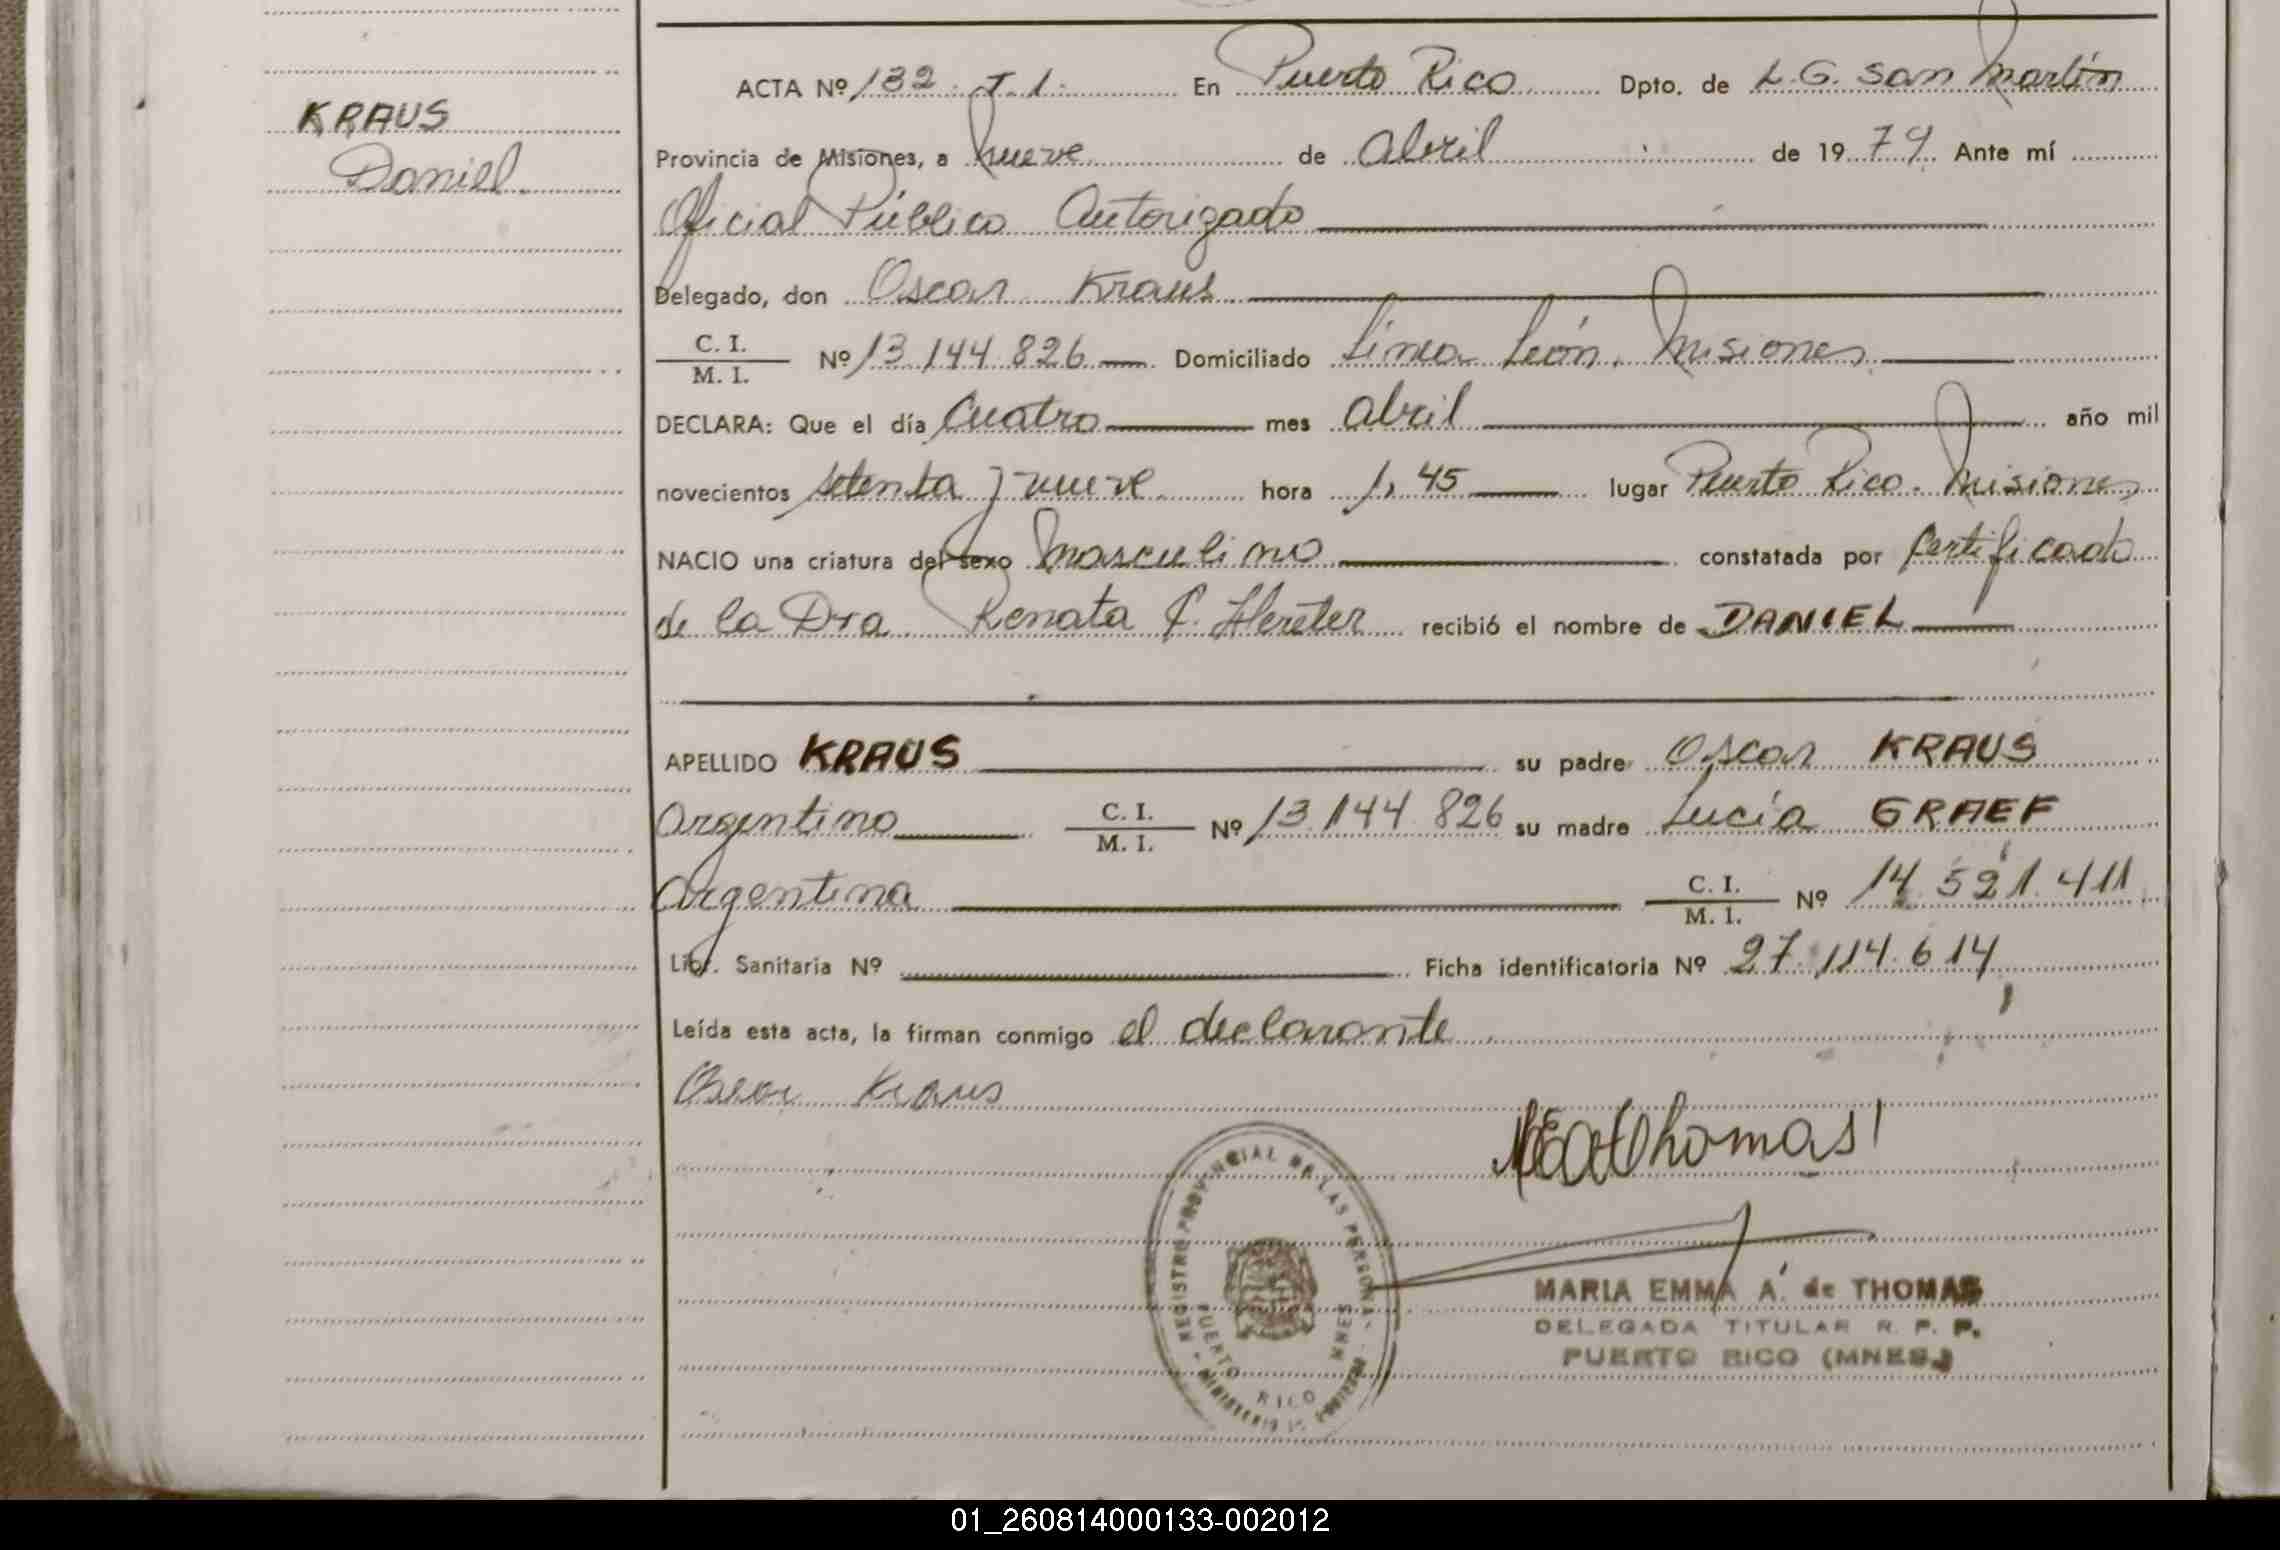 KRAUS
Daniel.
ACTA Nº 132. T. 1. En Puerto Rico Dpto. de L. G. San Martín
Provincia de Misiones, a nueve de abril de 1979. Ante mí
Oficial Público Autorizado
Delegado, don Oscar Kraus
C. I.
M. I.
Nº 13.144.826 Domiciliado Línea León. Misiones
DECLARA: Que el día cuatro mes abril año mil
novecientos setenta y nueve hora 1,45 lugar Puerto Rico. Misiones
NACIO una criatura del sexo masculino constatada por certificado
de la Dra. Renata Hereter recibió el nombre de DANIEL
APELLIDO KRAUS su padre Oscar KRAUS
Argentino C. I. M. I. Nº 13.144.826 su madre Lucía GRAEF
Argentina C. I. M. I. Nº 14.521.411
Libr. Sanitaria Nº Ficha identificatoria Nº 27.114.614
Leída esta acta, la firman conmigo el declarante
Oscar Kraus
MEAThomas
REGISTRO PROVINCIAL DE LAS PERSONAS
PUERTO RICO MNES
MARIA EMMA A. de THOMAS
DELEGADA TITULAR R. P. P.
PUERTO RICO (MNES.)
01_260814000133-002012